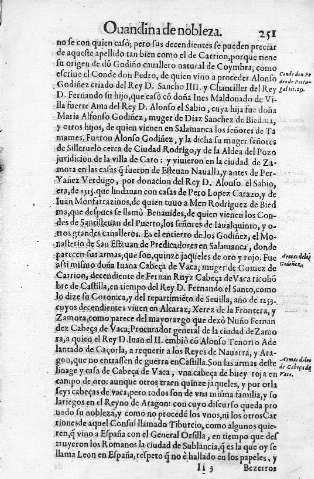 Ouandina de nobleza. 251
no se con quien casò; pero sus decendientes se pueden preciar
de aqueste apellido tan bien como el de Carrion, porque tiene
su origen de dõ Godiño cauallero natural de Coymbra, como
escriue el Conde don Pedro, de quien vino a proceder Alonso
Godiñez criado del Rey D. Sancho IIII. y Chanciller del Rey
D. Fernando su hijo, que casò cõ doña Ines Maldonado de
lla fuerte Ama del Rey D. Alonso el Sabio, cuya hija fue doña
Maria Alfonso Godiñez, muger de Diaz Sanchez de Biedma,
y otros hijos, de quien vienen en Salamanca los señores de Ta
mames, Fueron Alonso Godiñez, y la dicha su muger señores
de Silleruelo cerca de Ciudad Rodrigo, y de la Aldea del Pozo
juridicion de la villa de Caro: y viuieron en la ciudad de Za
mora en las casas q̃ fueron de Esteuan Naualla, y antes de Per-
Yañez Verdugo, por donacion del Rey D. Alonso el Sabi
era, de que lindauan con casas de Pero Lopez Carazo, y de
Iuan Monfarrazinos, de quien tuuo a Men Rodriguez de Biedma
ma, que despues se llamò Benauides, de quien vienen los Con
des de Santisteuan del Puerto, los señores de Iaualquinto, y o-
tros grandes caualleros. Es el encierro de los Godiñez, el Mo-
nasterio de San Esteuan de Predicadores en Salamanca, donde
parecen sus armas, que son, quinze jaqueles de oro y rojo. Fue
assi mismo doña Iuana Cabeça de Vaca, muger de Gomez de
Carrion, decendiente de Fernan Ruyz Cabeça de Vaca ricohõ
bre de Castilla, en tiempo del Rey D. Fernando el Santo, como
lo dize su Coronica, y del repartimiẽto de Seuilla, año de 1253.
cuyos decendientes viuen en Alcaraz, Xerez de la Frontera, y
Zamora, como parece del mayorazgo que dexò Nuño Fernan
dez Cabeça de Vaca, Procurador general de la ciudad de Zamo
ra, a quien el Rey D. Iuan el II. embiò cõ Alonso Tenorio Ade
lantado de Caçorla, a requerir a los Reyes de Nauarra, y Ara-
gon, que no entrassen de guerra en Castilla. Son las armas deste
linage y casa de Cabeça de Vaca, vna cabeça de buey roja en
campo de oro: aunque otros traen quinze jaqueles, y por orla
seys cabeças de vaca, pero todos son de vna misma familia, y so
lariegos en el Reyno de Aragon: con cuyo discurso queda pro
uado su nobleza, y como no procede los vnos, ni los otros Car
riones de aquel Consul llamado Tiburcio, como algunos quie-
ren, q̃ vino a España con el General Orsilla, en tiempo que des
truyeron los Romanos la ciudad de Sublancia, q̃ es la que oy se
llama Leon en España, respeto q̃ no è hallado en los papeles, y
Ii 3 Bezerros
Armas de los
Godiñez.
Armas de los
de Cabeça de
Vaca.